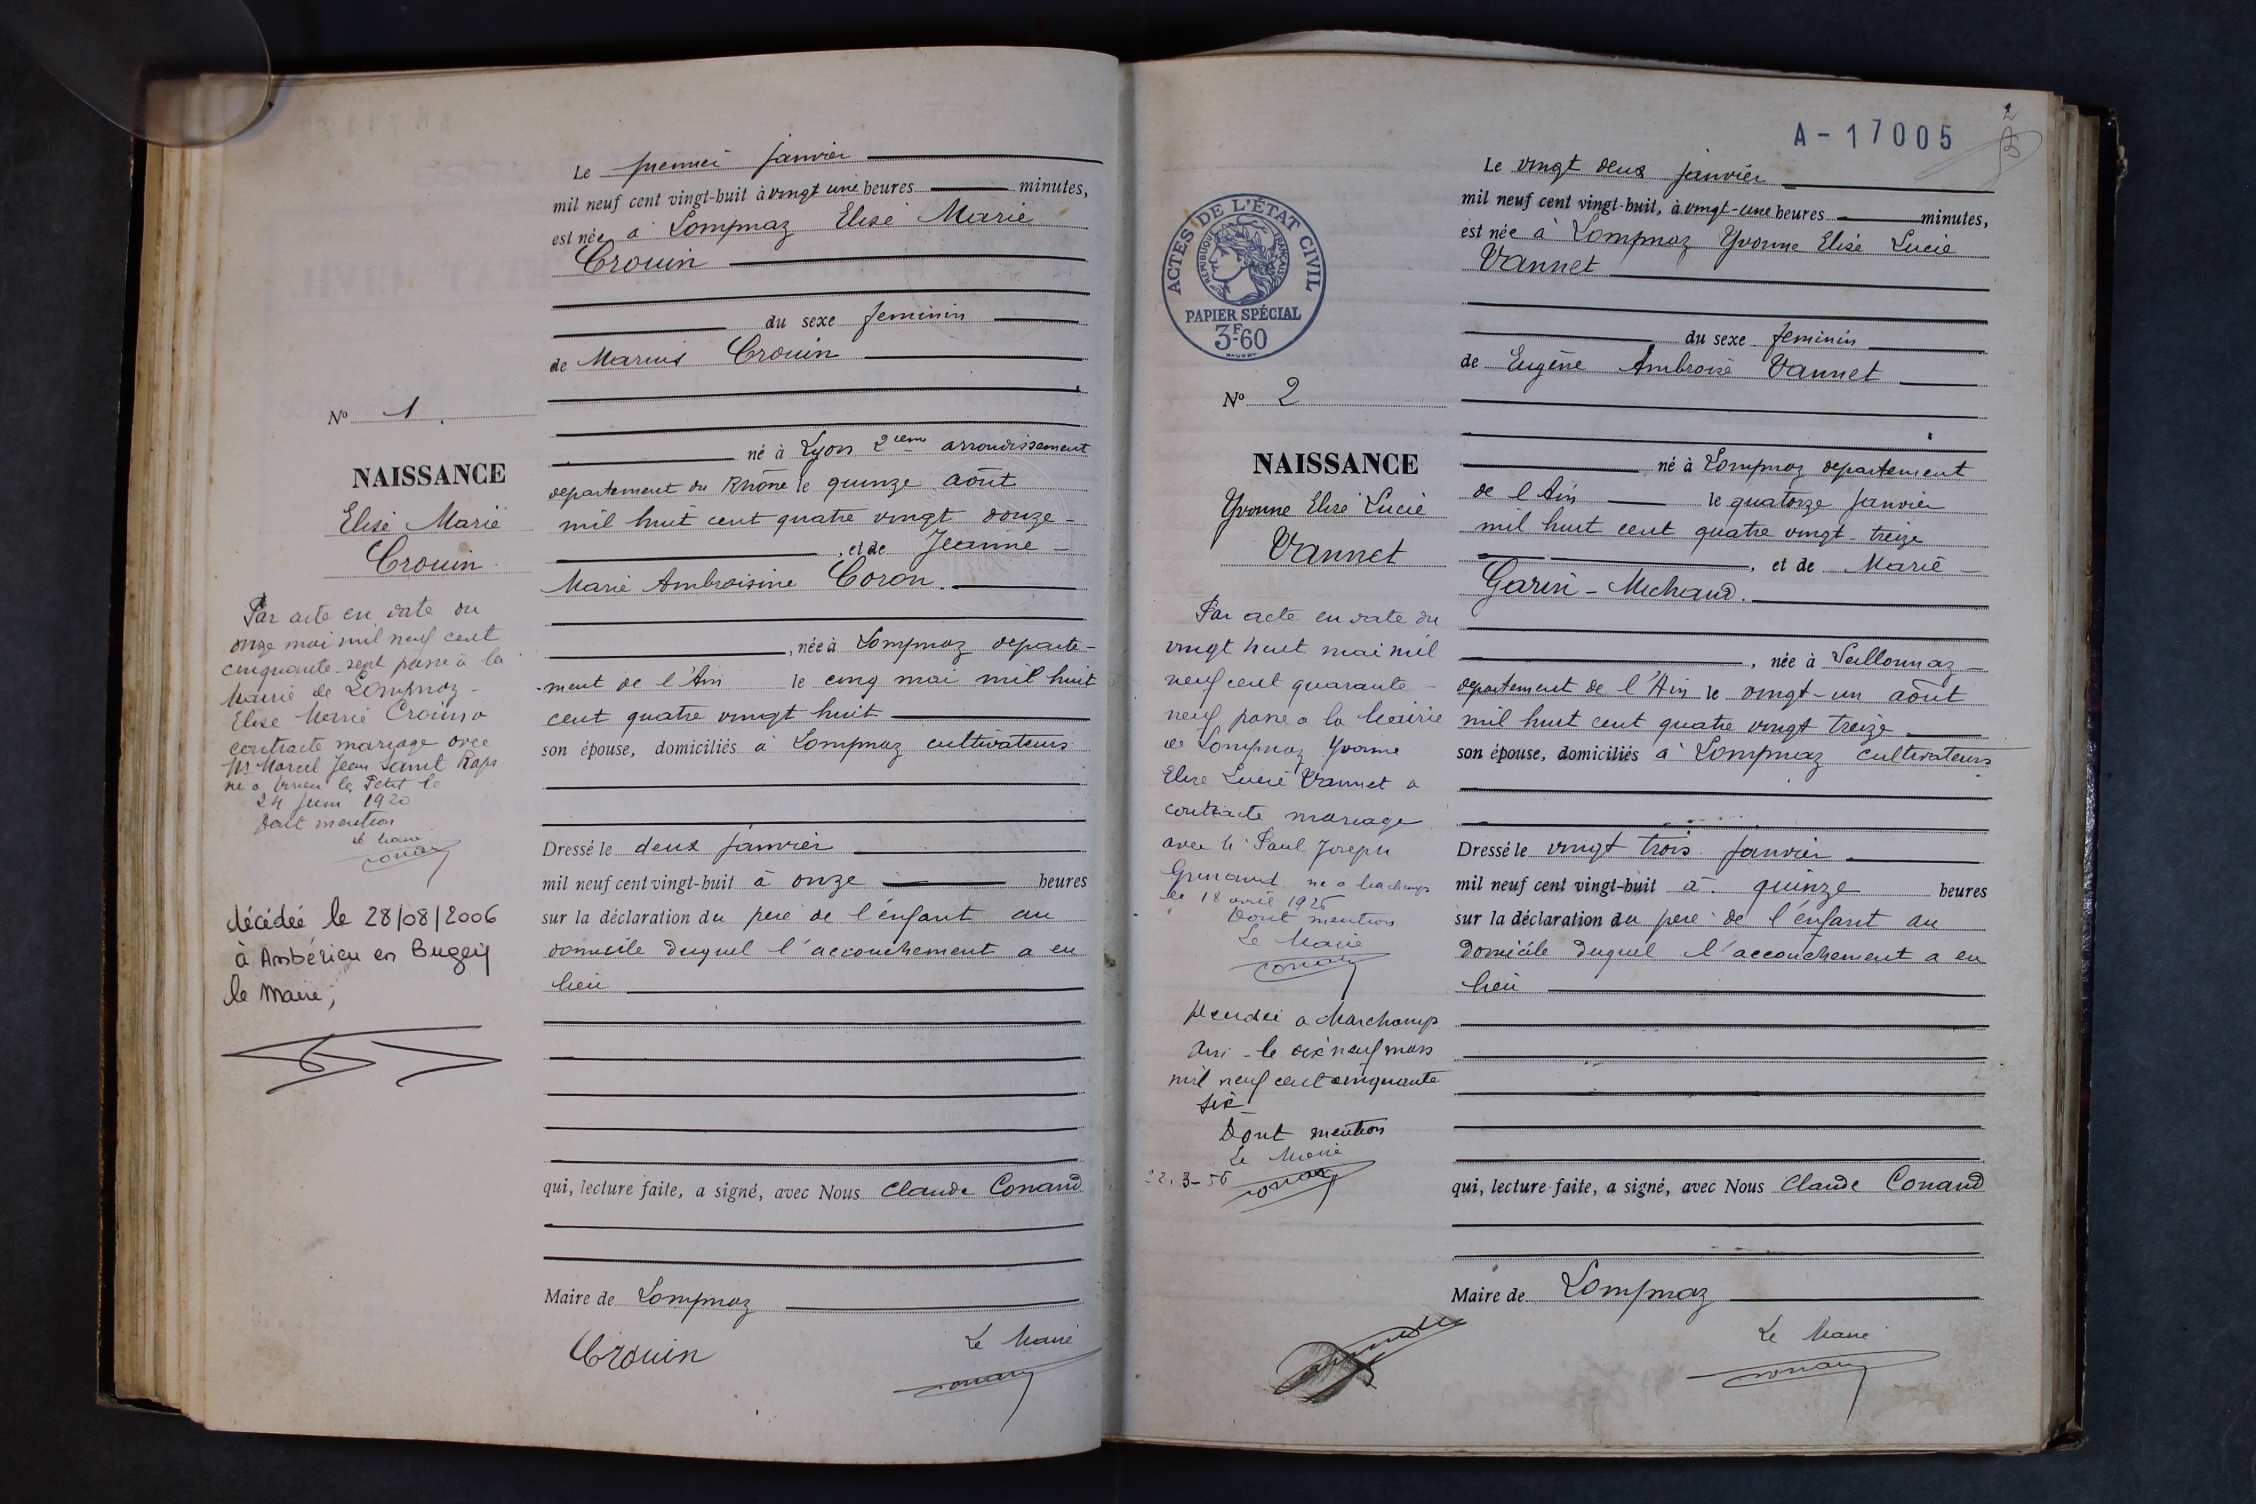 Le premier janvier
mil neuf cent vingt-huit à vingt une heures minutes,
est née à Lompnaz Elise Marie
Crouin
du sexe feminin
de Marius Crouin
né à Lyon 2ieme arrondissement
departement du Rhône le quinze août
mil huit cent quatre vingt douze
, et de Jeanne
Marie Ambroisine Coron.
, née à Lompnaz departe-
ment de l'Ain le cinq mai mil huit
cent quatre vingt huit
son épouse, domiciliés à Lompnaz cultivateurs
Dressé le deux janvier
mil neuf cent vingt-huit à onze heures
sur la déclaration du pere de l'enfant au
domicile duquel l'accouchement a eu
lieu
qui, lecture faite, a signé, avec Nous Claude Conand
Maire de Lompnaz
Crouin
Le Maire
Conand
No 1.
NAISSANCE
Elise Marie
Crouin
Par acte en date du
onze mai mil neuf cent
cinquante-sept passé à la
Mairie de Lompnaz
Elise Marie Crouin a
contracte mariage avec
Mr Marcel Jean
né a le Petit le
24 juin 1920
Dont mention
Le Maire
Conand
décédée le 28/08/2006
à Ambérieu en Bugey
le Maire,
2
A-17005
ACTES DE L'ÉTAT CIVIL
RÉPUBLIQUE FRANÇAISE
PAPIER SPÉCIAL
3F-60
No 2
NAISSANCE
Yvonne Elise Lucie
Vannet
Par acte en date du
vingt huit mai mil
neuf cent quarante
neuf passe a la Mairie
de Lompnaz Yvonne
Elise Lucie Vannet a
contracte mariage
avec Mr Paul Joseph
né a Marchamp
le 18 avril 1926
Dont mention
Le Maire
Conand
décédée a Marchamp
Ain - le dix neuf mars
mil neuf cent cinquante
six
Dont mention
Le Maire
22.3-56
Conand
Le vingt deux janvier
mil neuf cent vingt-huit, à vingt-une heures minutes,
est née à Lompnaz Yvonne Elise Lucie
Vannet
du sexe feminin
de Eugène Ambroise Vannet
né à Lompnaz departement
de l'Ain le quatorze janvier
mil huit cent quatre vingt-treize
, et de Marie
Garin-Michaud.
, née à Seillonnaz
departement de l'Ain le vingt-un août
mil huit cent quatre vingt treize
son épouse, domiciliés à Lompnaz cultivateurs
Dressé le vingt trois janvier
mil neuf cent vingt-huit à quinze heures
sur la déclaration du pere de l'enfant au
domicile duquel l'accouchement a eu
lieu
qui, lecture faite, a signé, avec Nous Claude Conand
Maire de Lompnaz
Le Maire
Conand